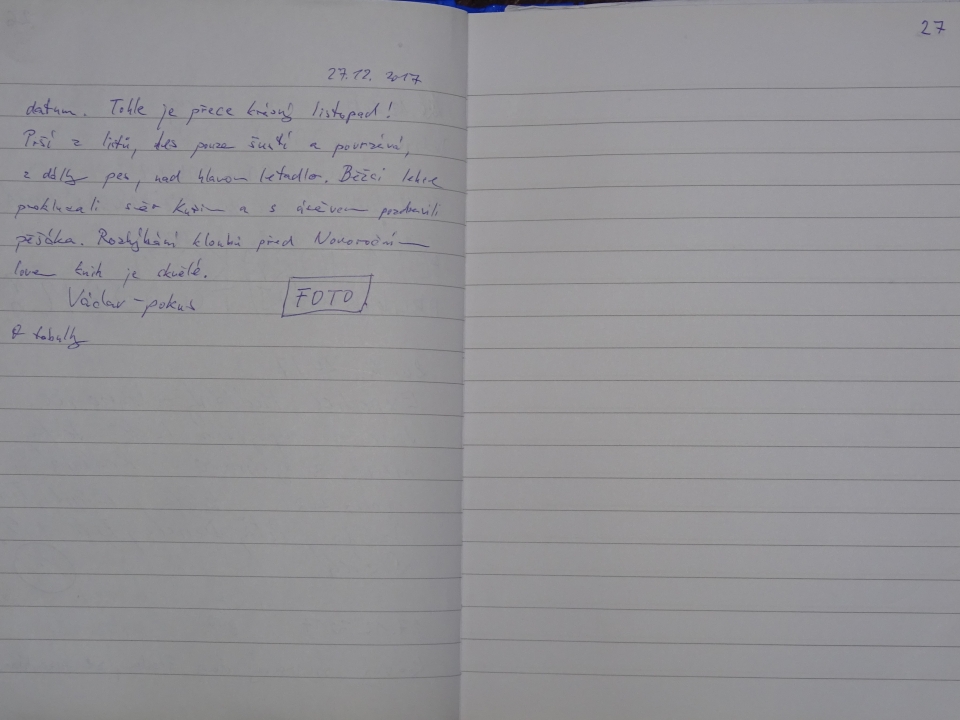 27
27.12. 2017
datum. Tohle je přece krásný listopad!
Prší z listů, les pouze šustí a povrzává,
z dálky pes, nad hlavou letadlo. Běžci lehce
proklouzali směr Kuřim a s úsměvem pozdravili
pěšáka. Rozhýbání kloubů před Novoročním
lovem knih je skvělé.
Václav - pokus
FOTO
tobolky